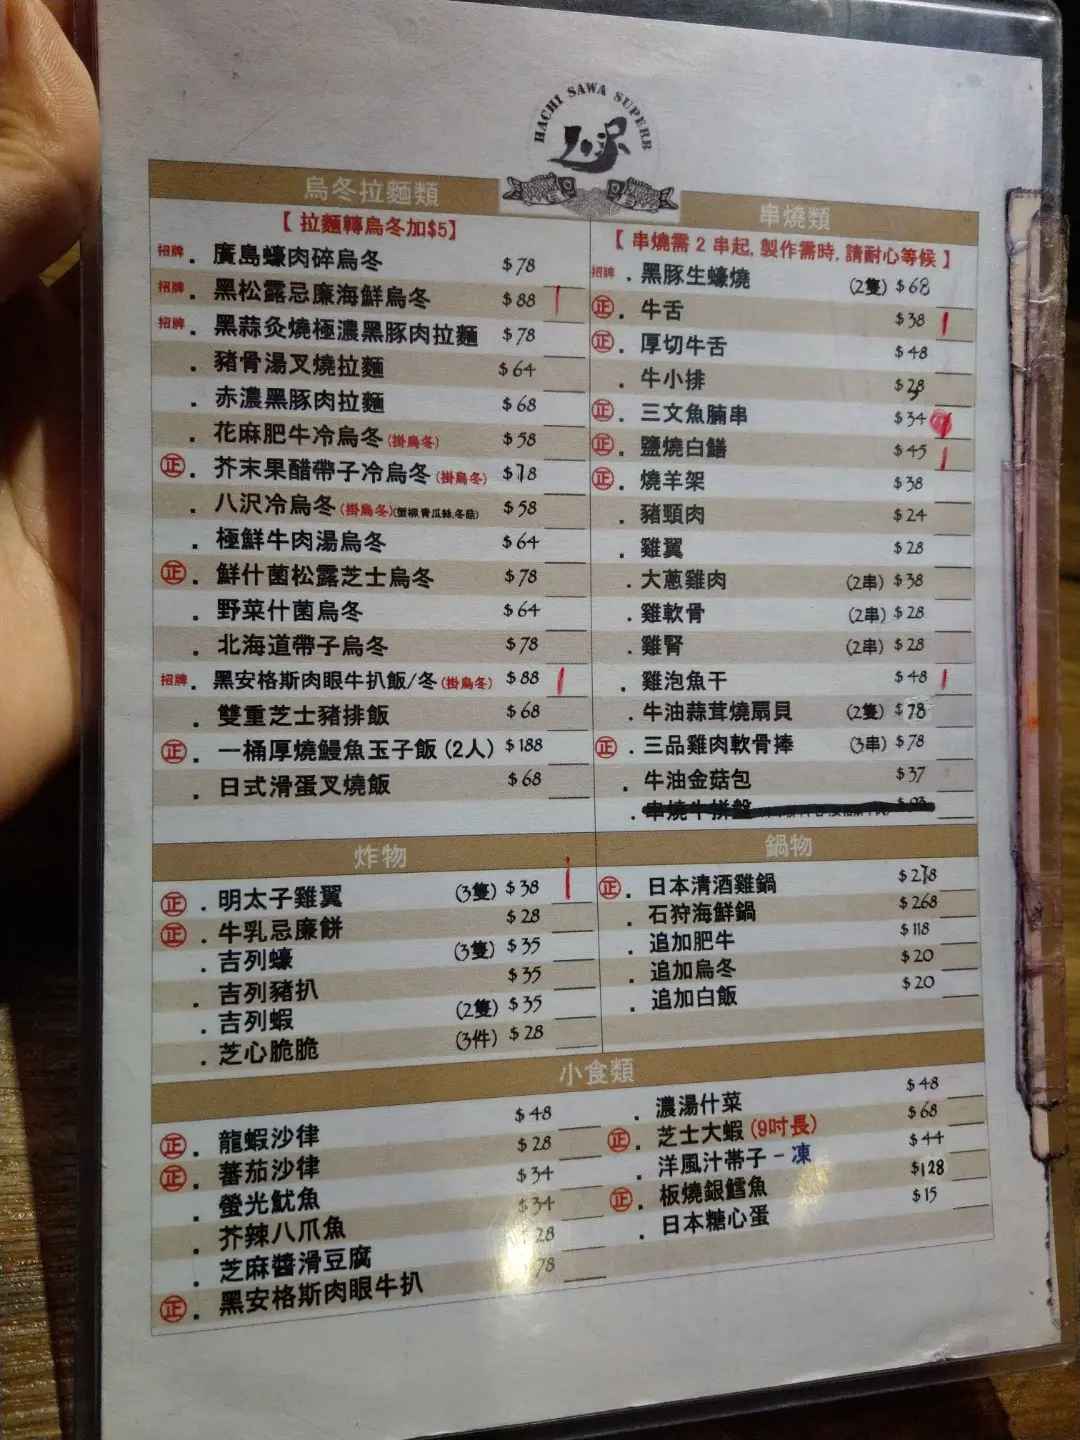 HACHI SAWA SUPERB
八沢
烏冬拉麵類
【 拉麵轉烏冬加$5】
招牌 . 廣島蠔肉碎烏冬 $78
招牌 . 黑松露忌廉海鮮烏冬 $88
招牌 . 黑蒜灸燒極濃黑豚肉拉麵 $78
. 豬骨湯叉燒拉麵 $64
. 赤濃黑豚肉拉麵 $68
. 花麻肥牛冷烏冬(掛烏冬) $58
正 . 芥末果醋帶子冷烏冬(掛烏冬) $78
. 八沢冷烏冬(掛烏冬)(蟹柳,青瓜絲,冬菇) $58
. 極鮮牛肉湯烏冬 $64
正 . 鮮什菌松露芝士烏冬 $78
. 野菜什菌烏冬 $64
. 北海道帶子烏冬 $78
招牌 . 黑安格斯肉眼牛扒飯/冬(掛烏冬) $88
. 雙重芝士豬排飯 $68
正 . 一桶厚燒鰻魚玉子飯(2人) $188
. 日式滑蛋叉燒飯 $68
串燒類
【 串燒需 2 串起, 製作需時, 請耐心等候 】
招牌 . 黑豚生蠔燒 (2隻) $68
正 . 牛舌 $38
正 . 厚切牛舌 $48
. 牛小排
正 . 三文魚腩串 $34
正 . 鹽燒白鱔 $45
正 . 燒羊架 $38
. 豬頸肉 $24
. 雞翼 $28
. 大蔥雞肉 (2串) $38
. 雞軟骨 (2串) $28
. 雞腎 (2串) $28
. 雞泡魚干 $48
. 牛油蒜茸燒扇貝 (2隻) $78
正 . 三品雞肉軟骨捧 (3串) $78
. 牛油金菇包 $37
. 串燒牛拼盤
炸物
正 . 明太子雞翼 (3隻) $38
正 . 牛乳忌廉餅 $28
. 吉列蠔 (3隻) $35
. 吉列豬扒 $35
. 吉列蝦 (2隻) $35
. 芝心脆脆 (3件) $28
鍋物
正 . 日本清酒雞鍋 $278
. 石狩海鮮鍋 $268
. 追加肥牛 $118
. 追加烏冬 $20
. 追加白飯 $20
小食類
正 . 龍蝦沙律 $48
正 . 蕃茄沙律 $28
. 螢光魷魚 $34
. 芥辣八爪魚 $34
. 芝麻醬滑豆腐 28
正 . 黑安格斯肉眼牛扒 78
. 濃湯什菜 $48
正 . 芝士大蝦 (9吋長) $68
. 洋風汁帶子 - 凍 $44
正 . 板燒銀鱈魚 $128
. 日本糖心蛋 $15